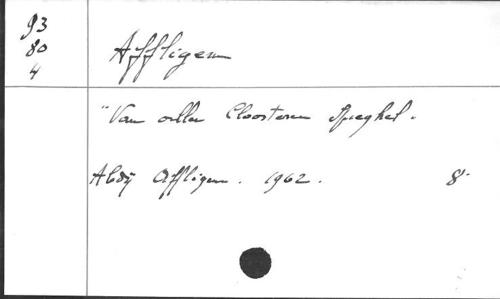 93
80
4
Affligem
"Van aller Cloosteren Spieghel.
Abdij Affligem. 1962. 8°